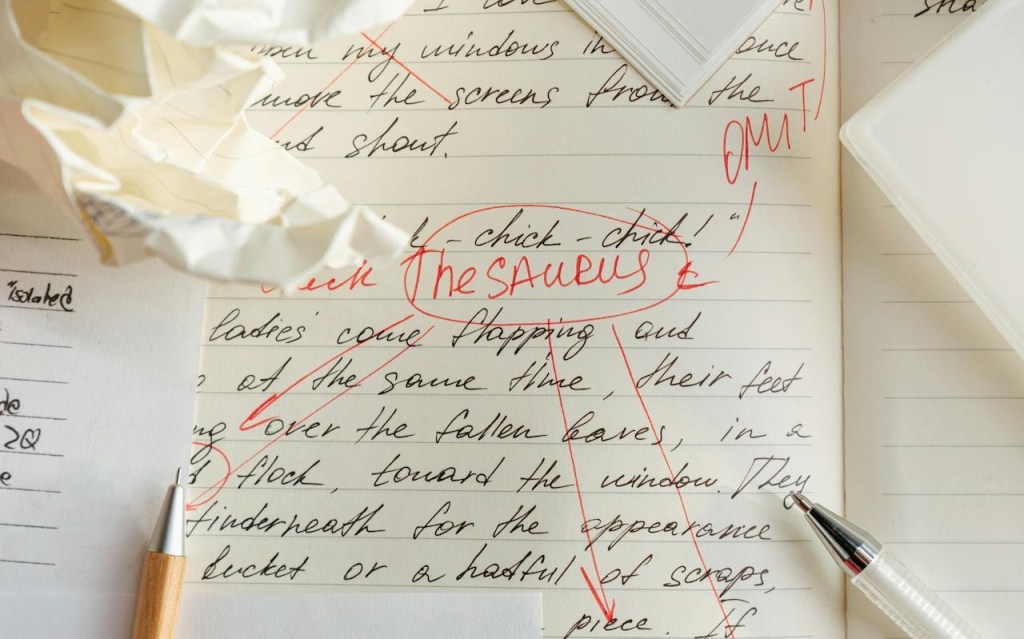 my windows in once
move the screens from the
OMIT
and shout.
- chick - chick!"
THESAURUS
ladies come flapping and
at the same time, their feet
over the fallen leaves, in a
flock, toward the window. They
underneath for the appearance
bucket or a hatful of scraps,
piece. If
"isolated